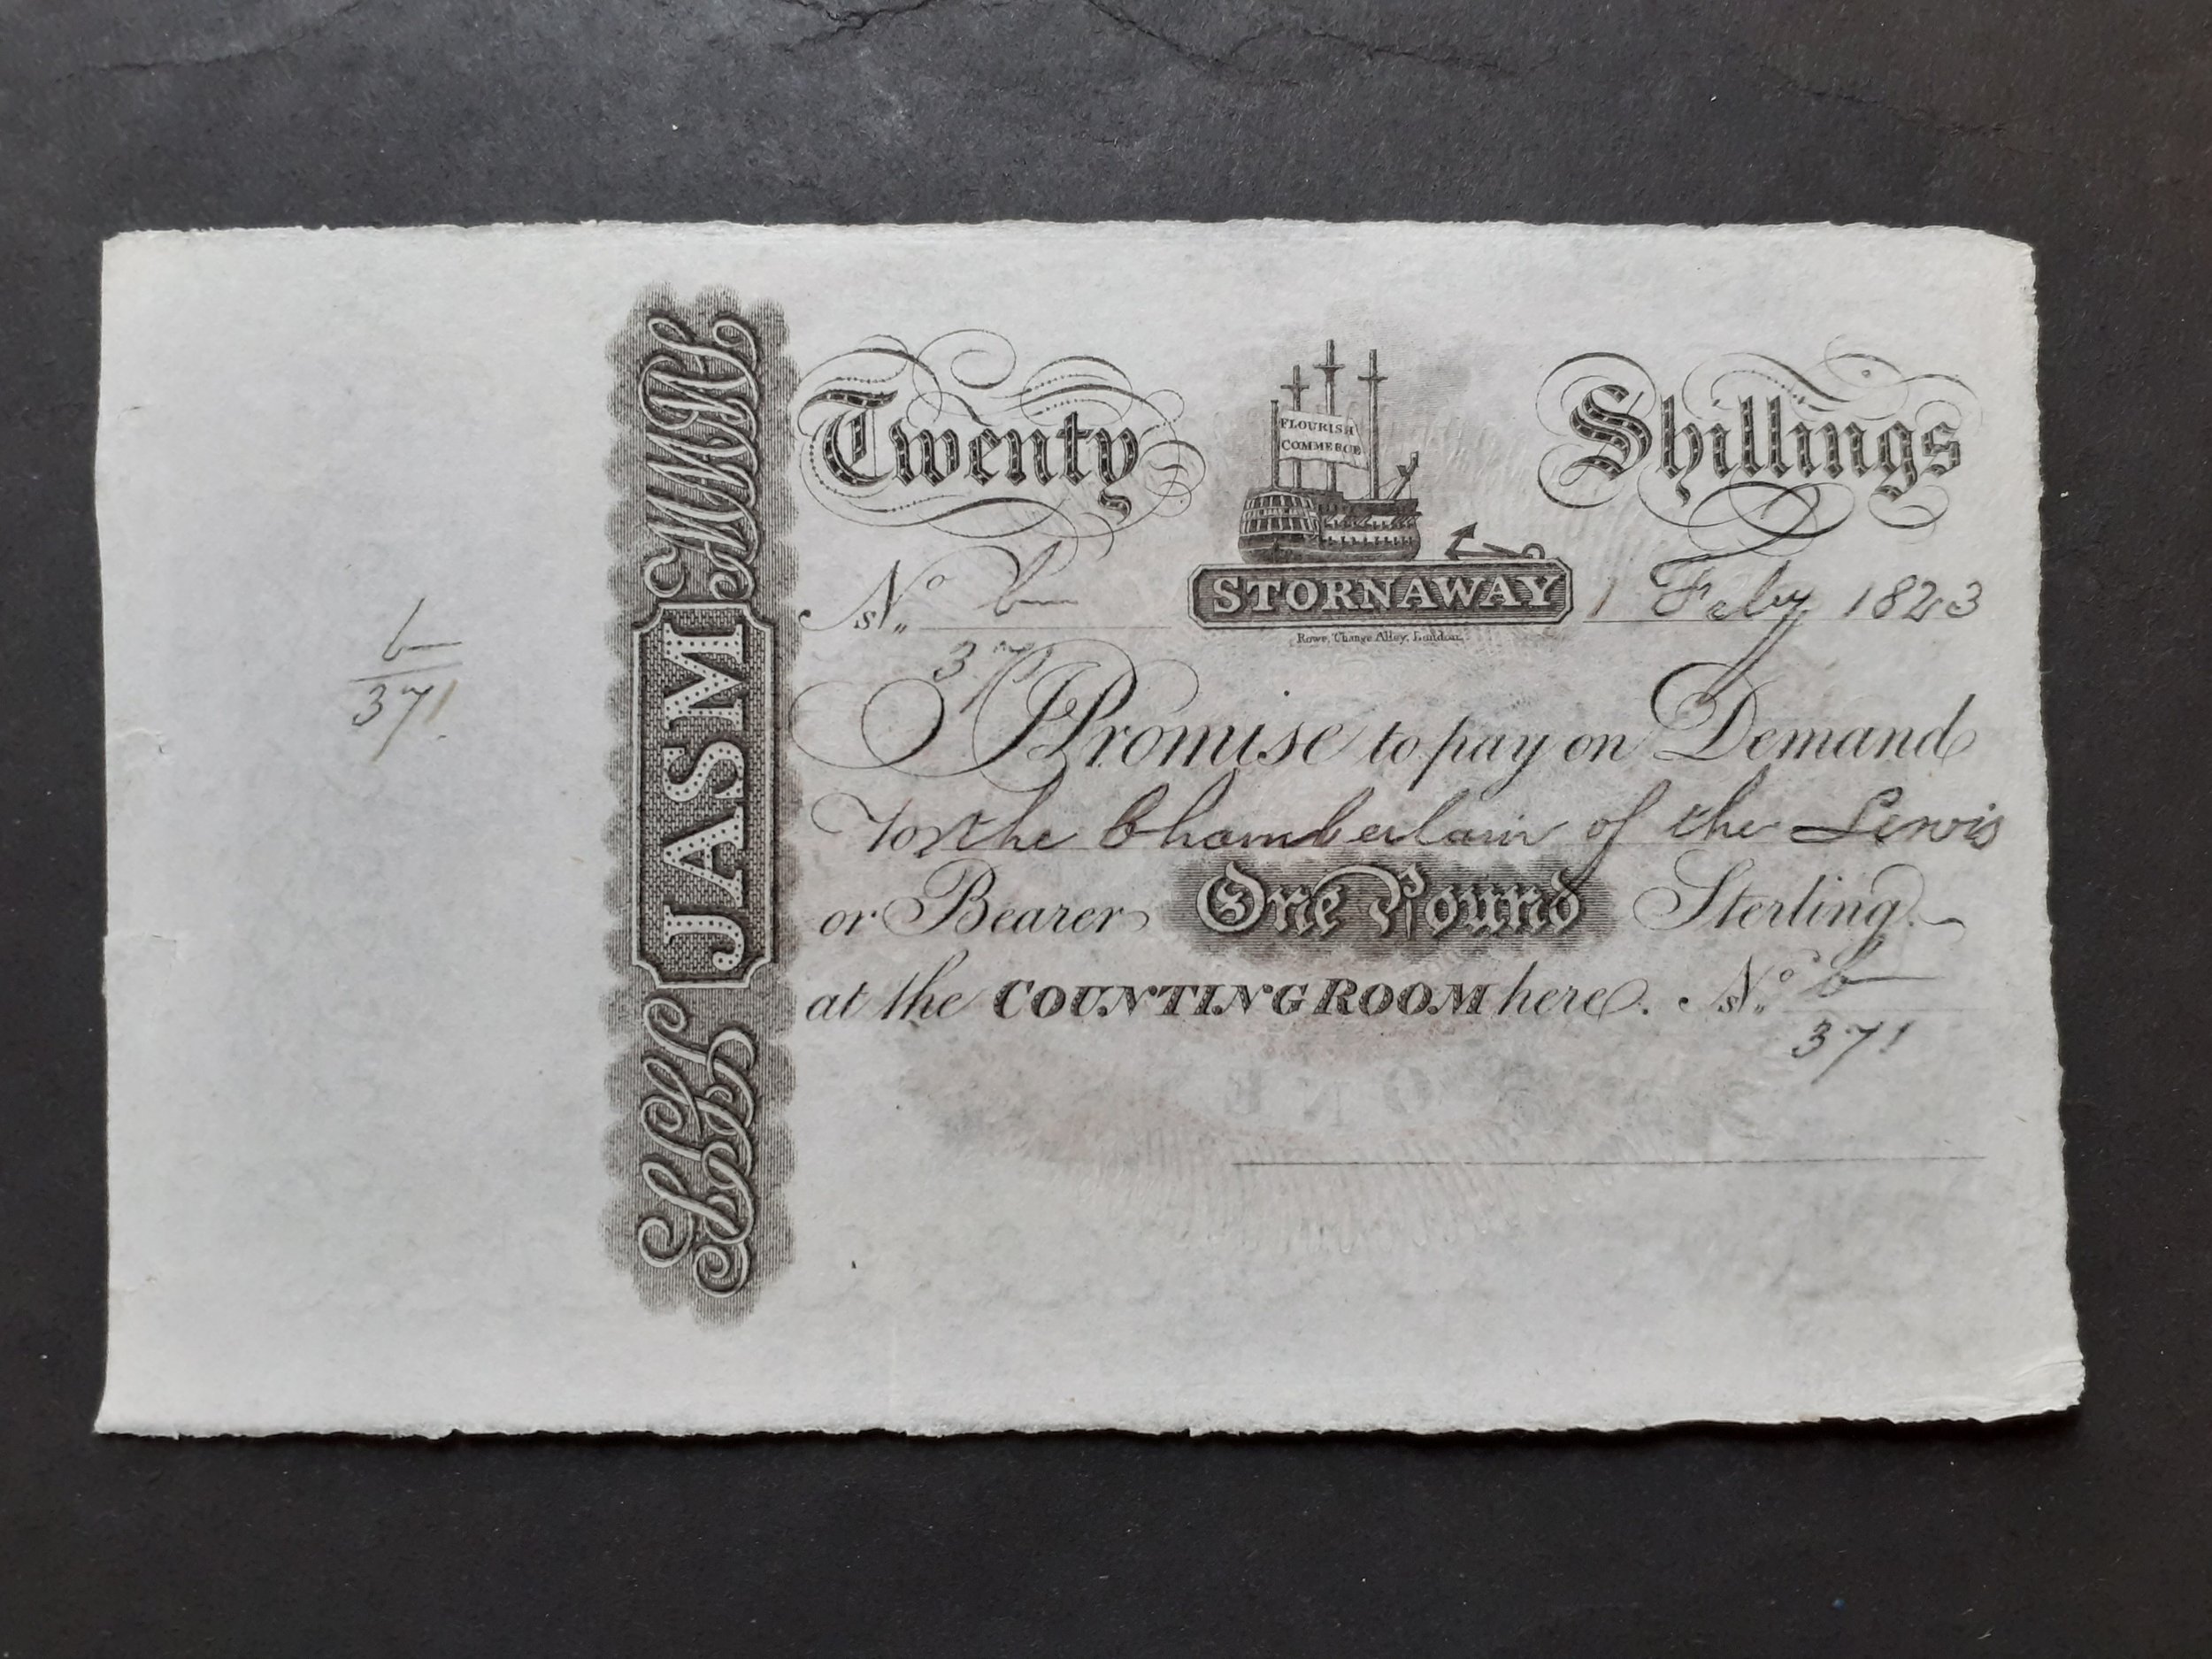 Twenty Shillings
FLOURISH
COMMERCE
No b
371
STORNAWAY
1 Feby 1823
Rowe, Change Alley, London.
I Promise to pay on Demand
To the Chamberlain of the Lewis
or Bearer One Pound Sterling
at the COUNTING ROOM here. No b
371
b
371
JASM
ONE